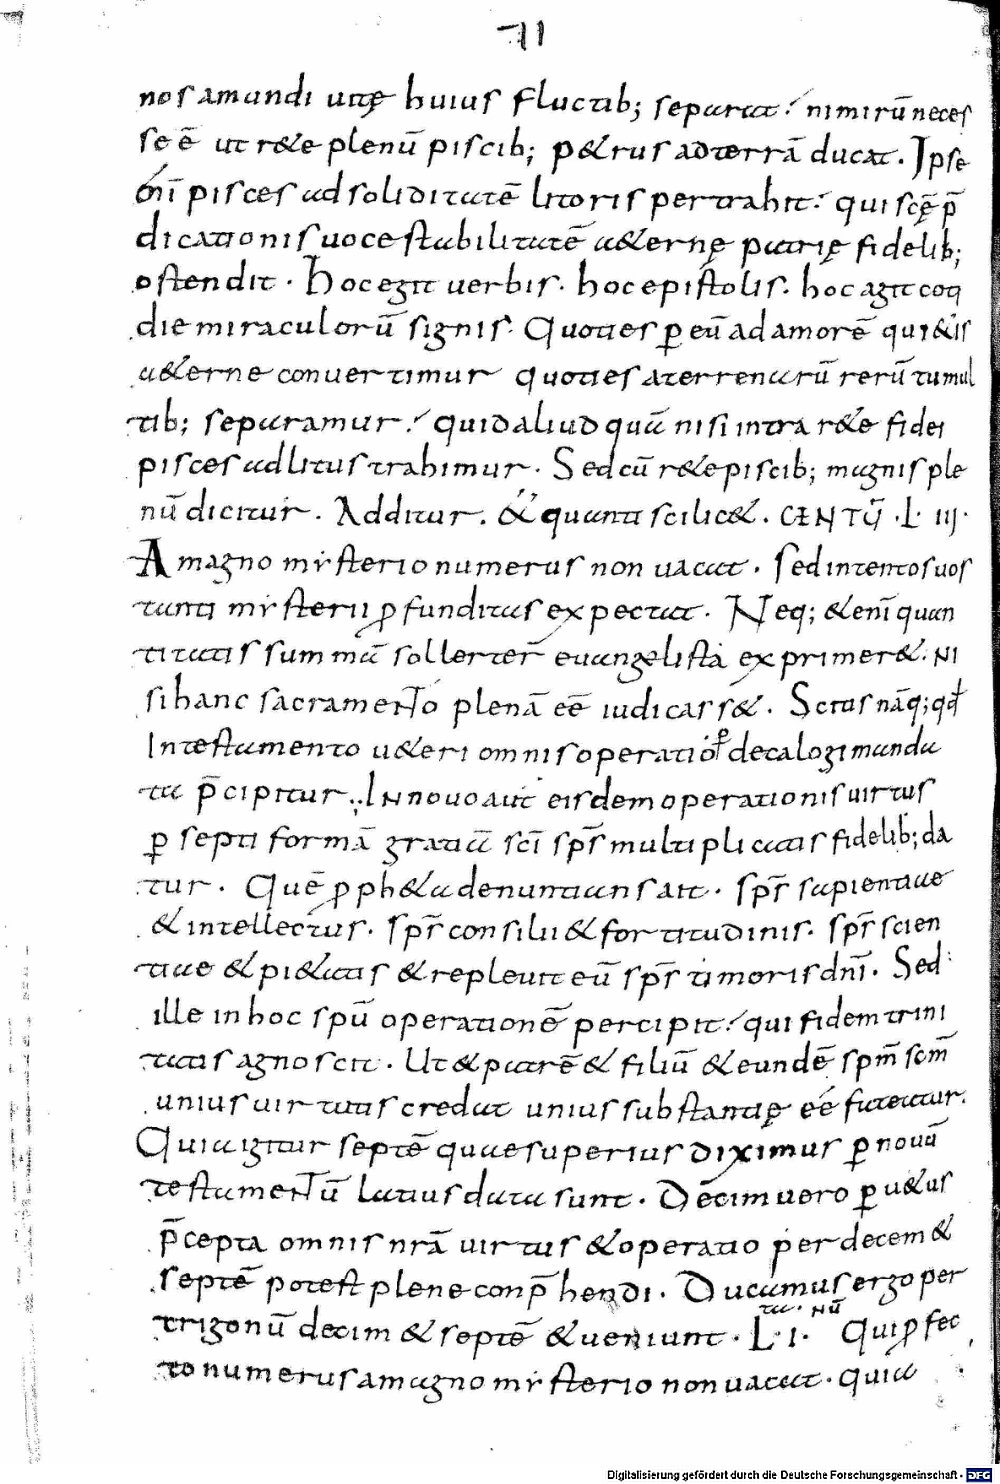 71
nos a mundi uitę huius fluctib; separat? nimirū neces
se ē ut rete plenū piscib; petrus ad terrā ducat. Ipse
eni pisces ad soliditatē litoris pertrahit? qui scę p̄
dicationis uoce stabilitatē aeternę patrię fidelib;
ostendit. Hoc egit uerbis. hoc epistolis. hoc agit coti
die miraculorū signis. Quoties ꝑ eū ad amorē quietis
aeterne conuertimur quoties a terrenarū rerū tumul
tib; separamur? quid aliud quā nisi intra rete fidei
pisces ad litus trahimur. Sed cū rete piscib; magnis ple
nū dicitur. Additur. & quantis scilic&. CENTŪ. L. III.
A magno mysterio numerus non uacat. Sed intentos uos
tanti mysterii ꝓfunditas expectat. Neq; &eni quan
titatis summā sollerter euangelista exprimer&. NI
si hanc sacramento plenā eē iudicass&. Scitis nāq; qđ
In testamento ueteri omnis operatio ꝑ decalogi manda
ta p̄cipitur. In nouo aut eisdem operationis uirtus
ꝑ septi formā gratiā sci sps̄ multiplicatis fidelib; da
tur. Quē ꝓph&a denuntians ait. sps̄ sapientiae
& intellectus. sps̄ consilii & fortitudinis. sps̄ scien
tiae & pi&atis & repleuit eū sps̄ timoris dnī. Sed
ille in hoc spū operationē percipit? qui fidem trini
tatis agnoscit. Ut & patrē & filiū & eundē spm̄ scm̄
unius uirtutis credat unius substantię eē fateatur.
Quia igitur septē quae superius diximus ꝑ nouū
testamentū latius data sunt. Decim uero ꝑ u&us
p̄cepta omnis nrā uirtus & operatio per decem &
septē potest plene conp̄hendi. Ducamus ergo per
trigonū decim & septē & ueniunt. L. I. Qui ꝓfec
ta. NŪ
to numerus a magno mysterio non uacat. quia
Digitalisierung gefördert durch die Deutsche Forschungsgemeinschaft - DFG